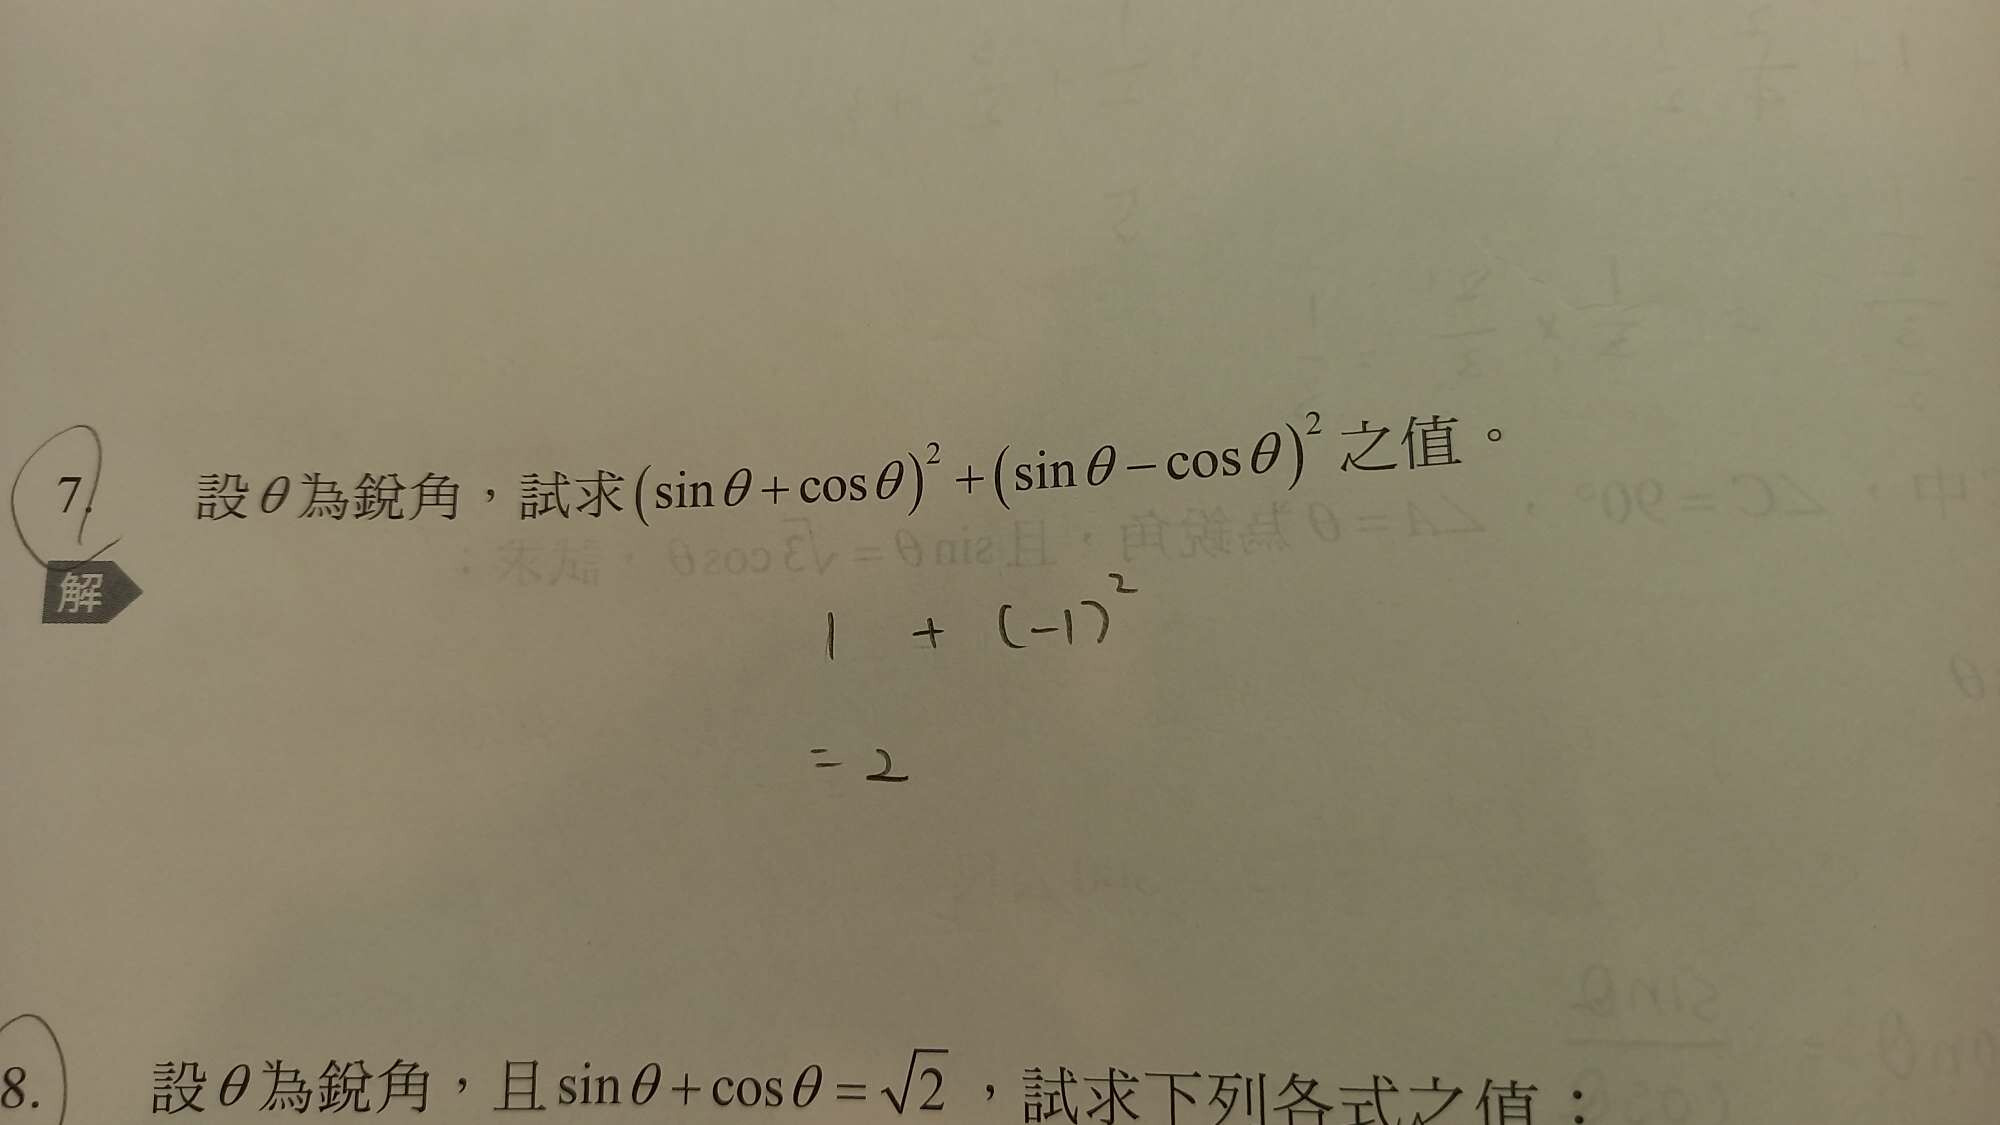 7. 設θ為銳角，試求(sinθ+cosθ)²+(sinθ−cosθ)²之值。
解
1 + (-1)²
= 2
8. 設θ為銳角，且sinθ+cosθ=√2，試求下列各式之值：